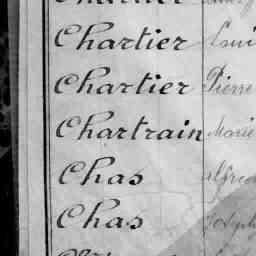 Chartier
Chartier Pierre
Chartrain Marie
Chas
Chas